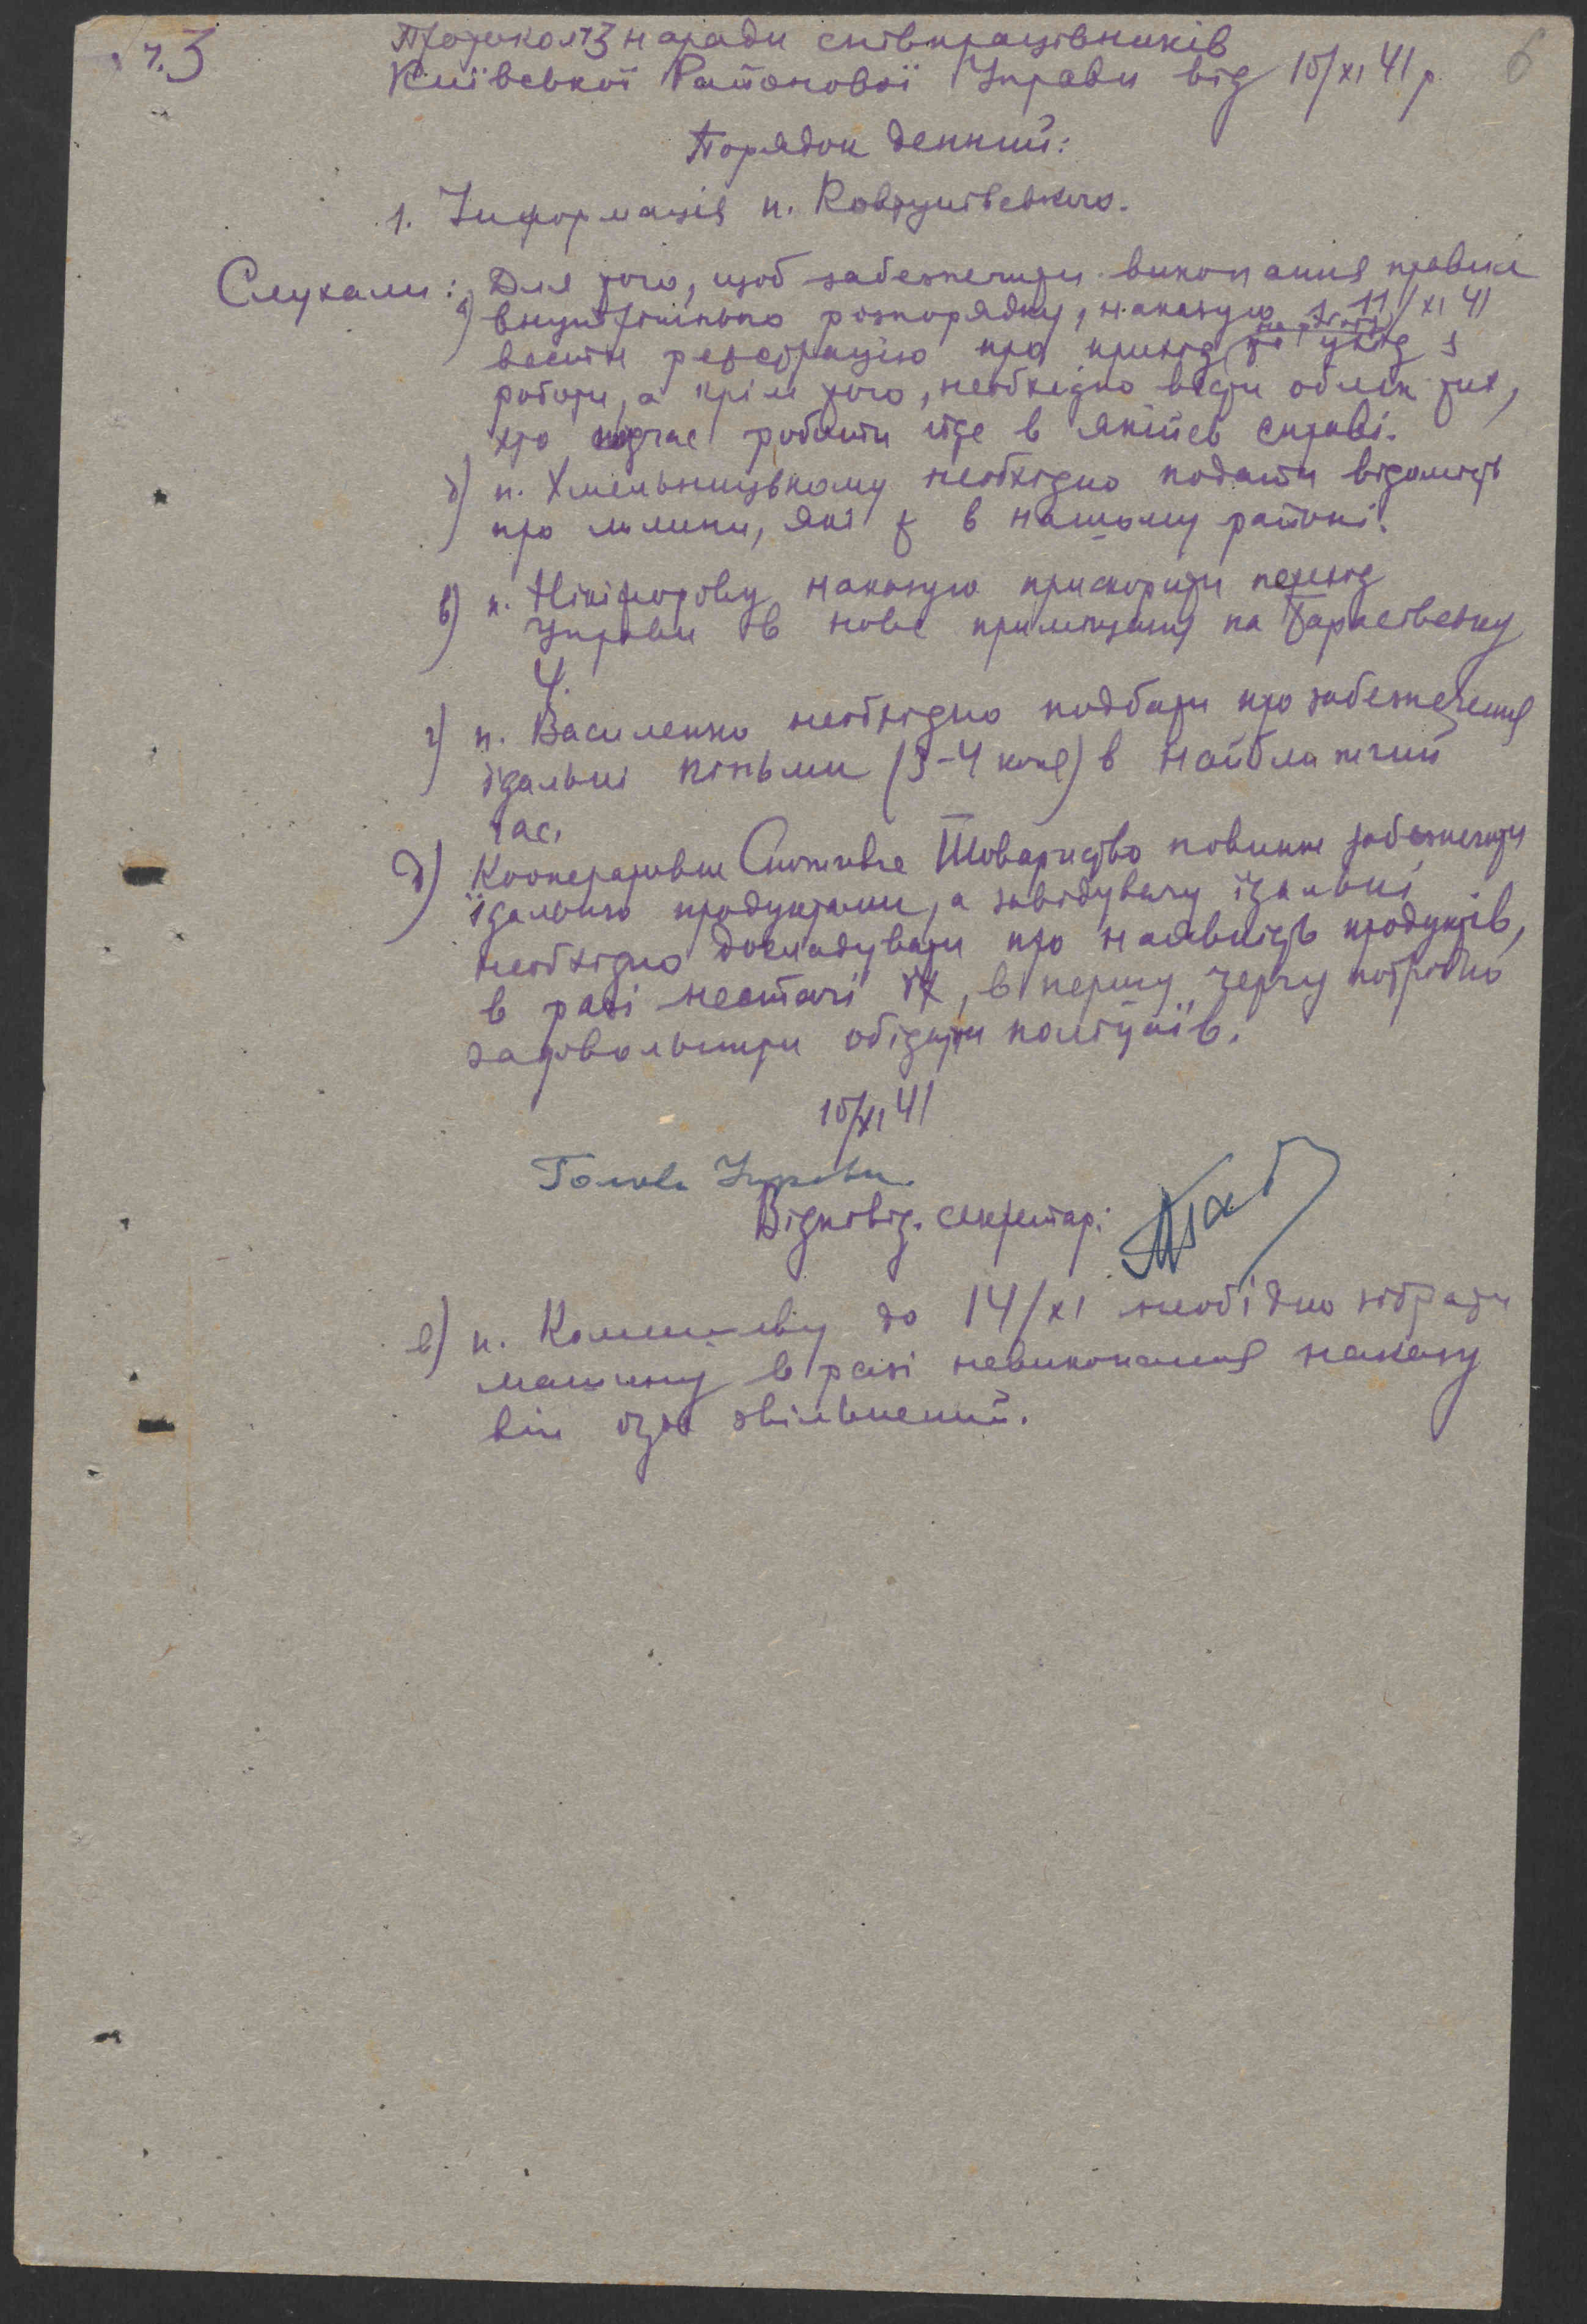 ч.3
6
Протокол ч3 наради співпрацівників
Київської Районової Управи від 10/XI 41 р.
Порядок денний:
1. Інформація п.
Слухали: а) Для того, щоб забезпечити виконання правил
внутрішнього розпорядку, наказую з 11/XI 41
на роботу
вести реєстрацію про прихід та уход з
роботи, а крім того, необхідно вести облік тих,
хто підчас роботи йде в якійсь справі.
б) п. Хмельницькому необхідно подати відомість
про млини, які є в нашому районі.
в) п. Нікіфорову наказую прискорити перехід
Управи в нове приміщення на
4.
г) п. Василенко необхідно подбати про забезпечення
їдальні кіньми (3-4 коня) в найближчий
час.
д) Кооперативне Споживче Товариство повинно забезпечити
їдальню продуктами, а завідувачу їдальні
необхідно докладувати про наявність продуктів,
в разі нестачі їх, в першу чергу потрібно
задовольнити обідами поліцаїв.
10/XI 41
Голова Управи
Відповід. секретар:
е) п. до 14/XI необідно зібрати
машину в разі невиконання наказу
він буде звільнений.